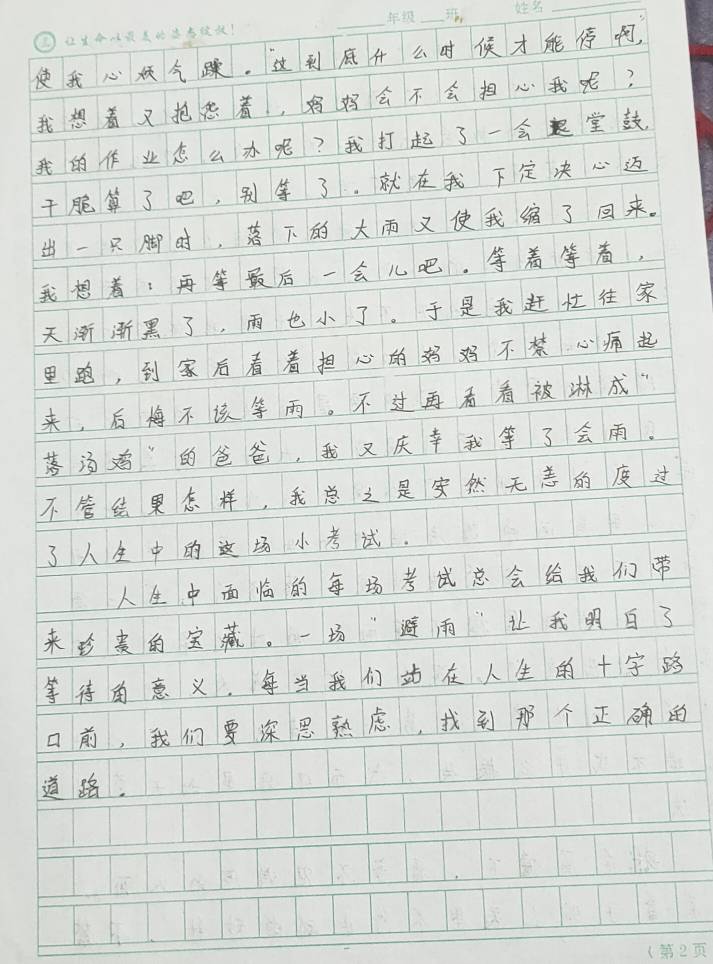 让生命以最美的姿态绽放!
年级 班 姓名
使我心烦气躁。"这到底什么时候才能停啊,"
我想着又抱怨着,妈妈会不会担心我呢?
我的作业怎么办呢?我打起了一会堂鼓,
干脆算了吧,别等了。就在我下定决心迈
出一只脚时,落下的大雨又使我缩了回来。
我想着:再等最后一会儿吧。等着等着,
天渐渐黑了,雨也小了。于是我赶忙往家
里跑,到家后看着担心的妈妈不禁心痛起
来,后悔不该等雨。不过再看看被淋成"
落汤鸡"的爸爸,我又庆幸我等了会雨。
不管结果怎样,我总之是安然无恙的度过
了人生中的这场小考试。
人生中面临的每场考试总会给我们带
来珍贵的宝藏。一场"避雨"让我明白了
等待的意义。每当我们站在人生的十字路
口前,我们要深思熟虑,找到那个正确的
道路。
(第2页